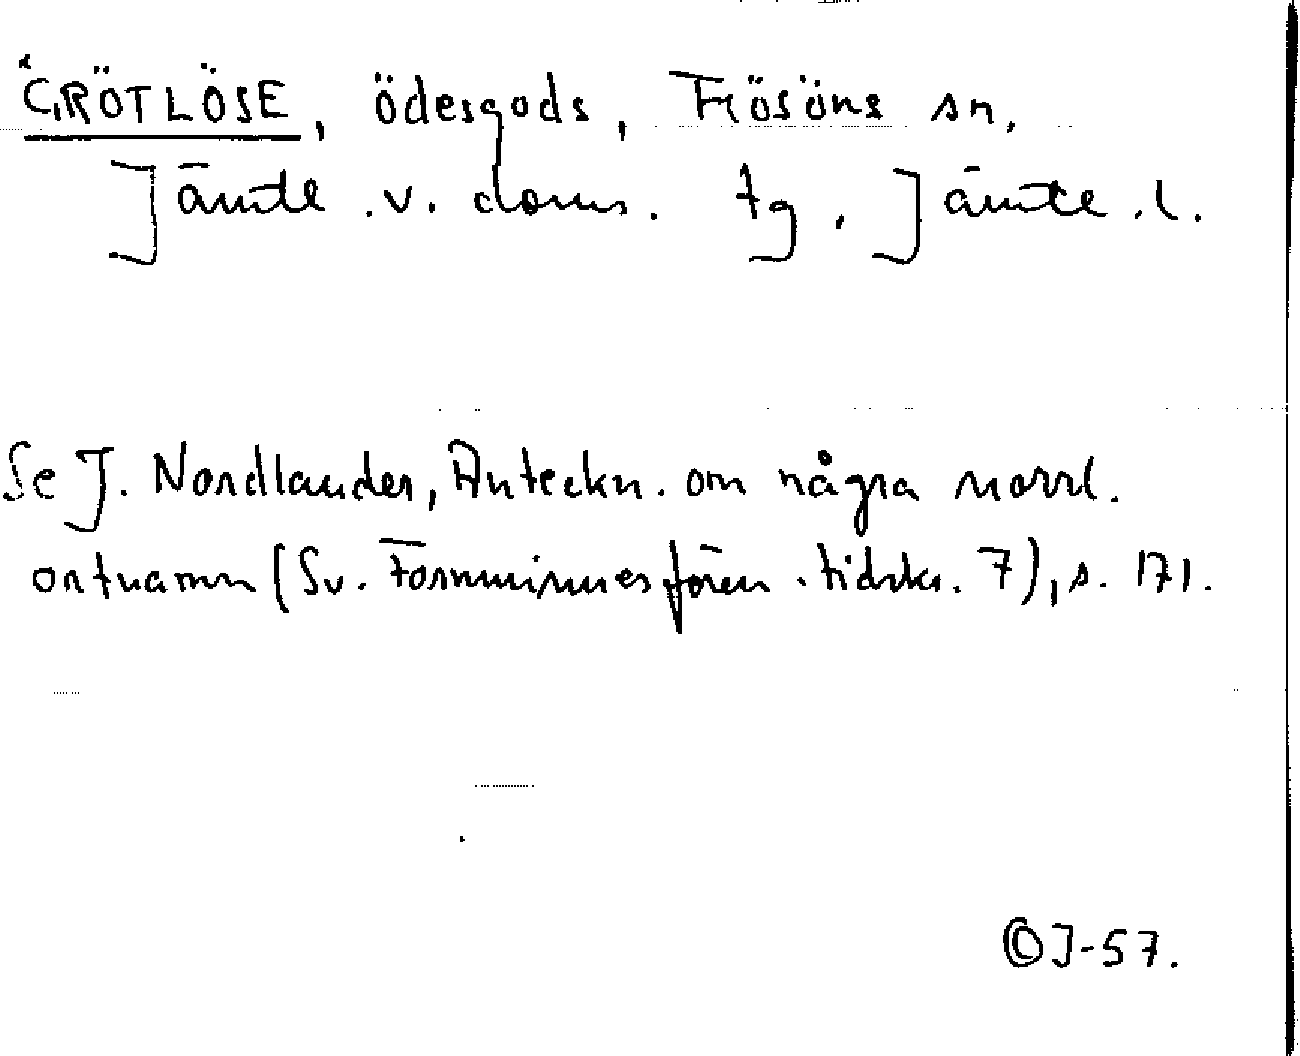 "GRÖTLÖSE, ödesgods, Frösöns sn,
Jämtl. v. doms. tg, Jämtl. l.
Se J. Nordlander, Anteckn. om några norrl.
ortnamn (Sv. Fornminnesfören. tidskr. 7), s. 171.
ÖJ-57.